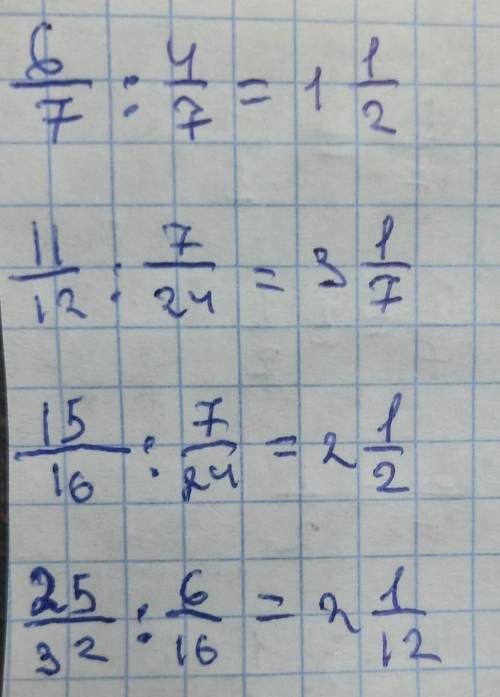 6/7 : 4/7 = 1 1/2
11/12 : 7/24 = 3 1/7
15/16 : 7/24 = 2 1/2
25/32 : 6/16 = 2 1/12